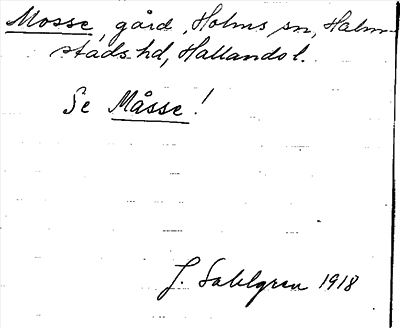 Mosse, gård, Holms sn, Halm-
stads hd, Hallands l.
Se Måsse!
J. Sahlgren 1918